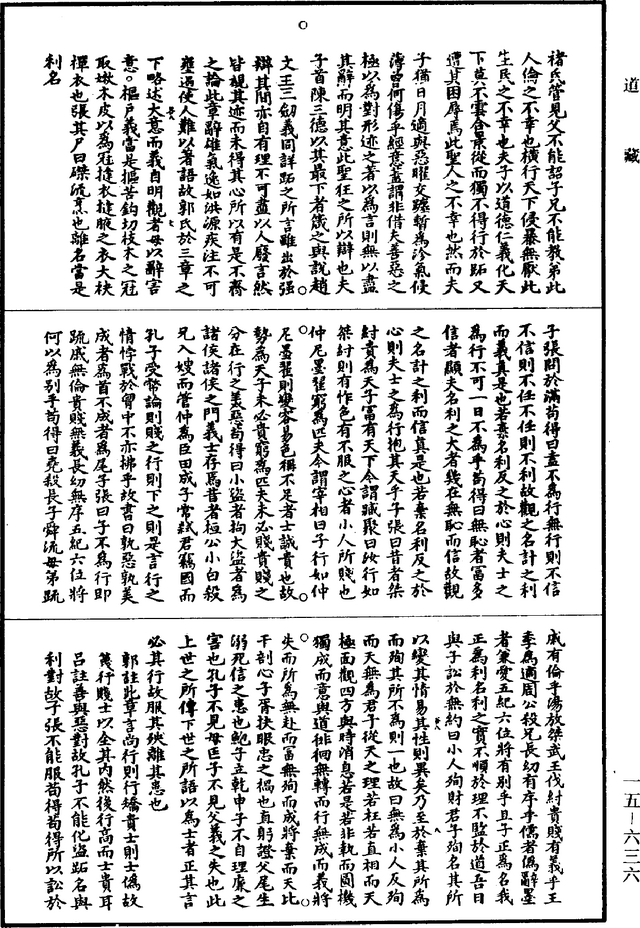 道藏
褚氏管見父不能詔子兄不能教弟此
人倫之不幸也橫行天下侵暴無厭此
生民之不幸也夫子以道德仁義化天
下莫不雲合景從而獨不得行於跖又
遭其困辱焉此聖人之不幸也然而夫
子猶日月適與惡曜交躔暫為沴氣侵
薄曾何傷乎經意蓋謂非借夫善惡之
極以為對形迹之著以為言則無以盡
其辭而明其意此聖狂之所以辯也夫
子首陳三德以其最下者箴之與說趙
文王三劒義同詳跖之所言雖出於強
辯其間亦自有理不可盡以人廢言然
皆覩其迹而未得其心所以有是不齊
之論此章辭雄氣逸如洪源疾注不可
壅遏使人難以著語故郭氏於三章之
下略述大意而義自明觀者毋以辭害
意。樞戶義當是摳苦鈎切枝木之冠
取嫩木皮以為冠搓衣搓腋之衣大袂
襌衣也張其尸曰磔流烹也離名當是
利名
子張問於滿苟得曰盍不為行無行則不信
不信則不任不任則不利故觀之名計之利
而義真是也若棄名利反之於心則夫士之
為行不可一日不為乎苟得曰無恥者富多
信者顯夫名利之大者幾在無恥而信故觀
之名計之利而信真是也若棄名利反之於
心則夫士之為行抱其天乎子張曰昔者桀
紂貴為天子富有天下今謂臧聚曰汝行如
桀紂則有怍色有不服之心者小人所賤也
仲尼墨翟窮為匹夫今謂宰相曰子行如仲
尼墨翟則變容易色稱不足者士誠貴也故
勢為天子未必貴窮為匹夫未必賤貴賤之
分在行之美惡苟得曰小盜者拘大盜者為
諸侯諸侯之門義士存焉昔者桓公小白殺
兄入嫂而管仲為臣田成子常弑君竊國而
孔子受幣論則賤之行則下之則是言行之
情悖戰於胷中不亦拂乎故書曰孰惡孰美
成者為首不成者為尾子張曰子不為行即
疏戚無倫貴賤無義長幼無序五紀六位將
何以為別乎苟得曰堯殺長子舜流母弟疏
戚有倫乎湯放桀武王伐紂貴賤有義乎王
季為適周公殺兄長幼有序乎儒者偽辭墨
者兼愛五紀六位將有別乎且子正為名我
正為利名利之實不順於理不監於道吾日
與子訟於無約曰小人殉財君子殉名其所
以變其情易其性則異矣乃至於棄其所為
而殉其所不為則一也故曰無為小人反殉
而天無為君子從天之理若枉若直相而天
極面觀四方與時消息若是若非執而圓機
獨成而意與道徘徊無轉而行無成而義將
失而所為無赴而富無殉而成將棄而天比
干剖心子胥抉眼忠之禍也直躬證父尾生
溺死信之患也鮑子立乾申子不自理廉之
害也孔子不見母匡子不見父義之失也此
上世之所傳下世之所語以為士者正其言
必其行故服其殃離其患也
郭註此章言尚行則行矯貴士則士偽故
蔑行賤士以全其內然後行高而士貴耳
呂註善與惡對故孔子不能化盜跖名與
利對故子張不能服苟得苟得所以訟於
一五—六三六